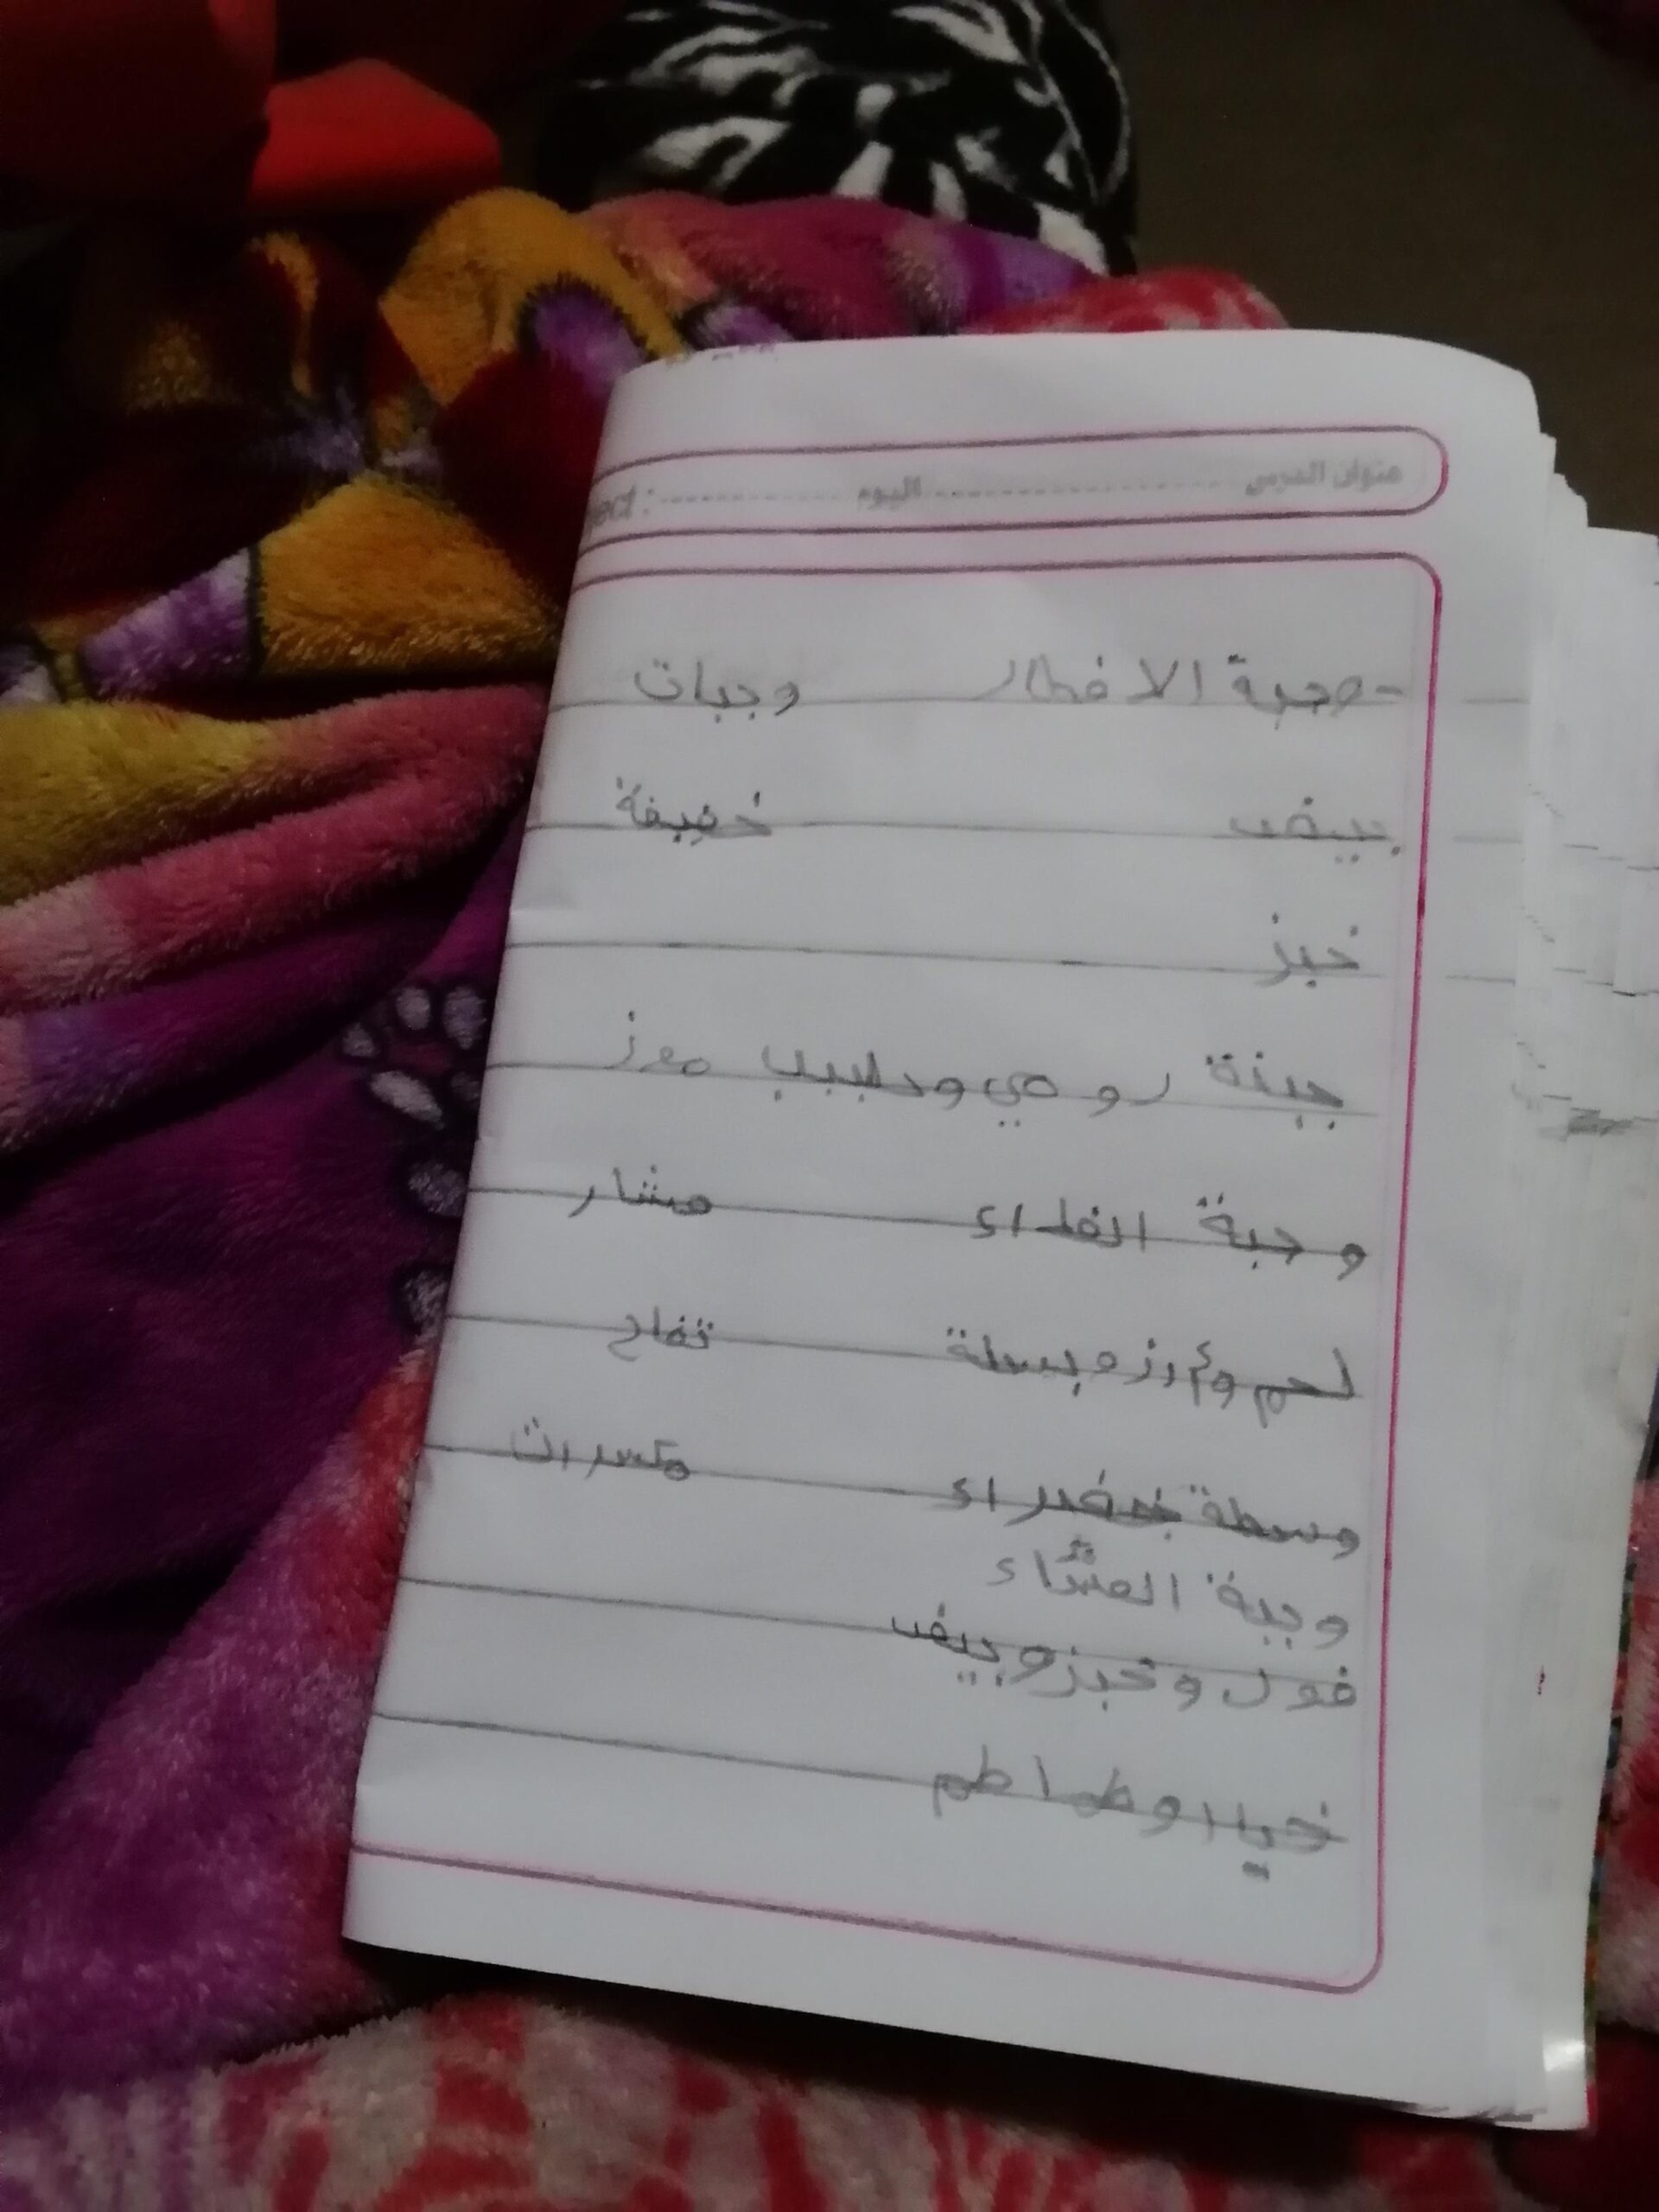 عنوان الدرس ............ اليوم ............ ject :
- وجبة الافطار وجبات
بيض خفيفة
خبز
جبنة رومي وحليب موز
وجبة الغداء مشار
لحم وأرز وبسلة تفاح
وسطة خضراء مكسرات
وجبة العشاء
فول وخبز وبيض
خيار وطماطم